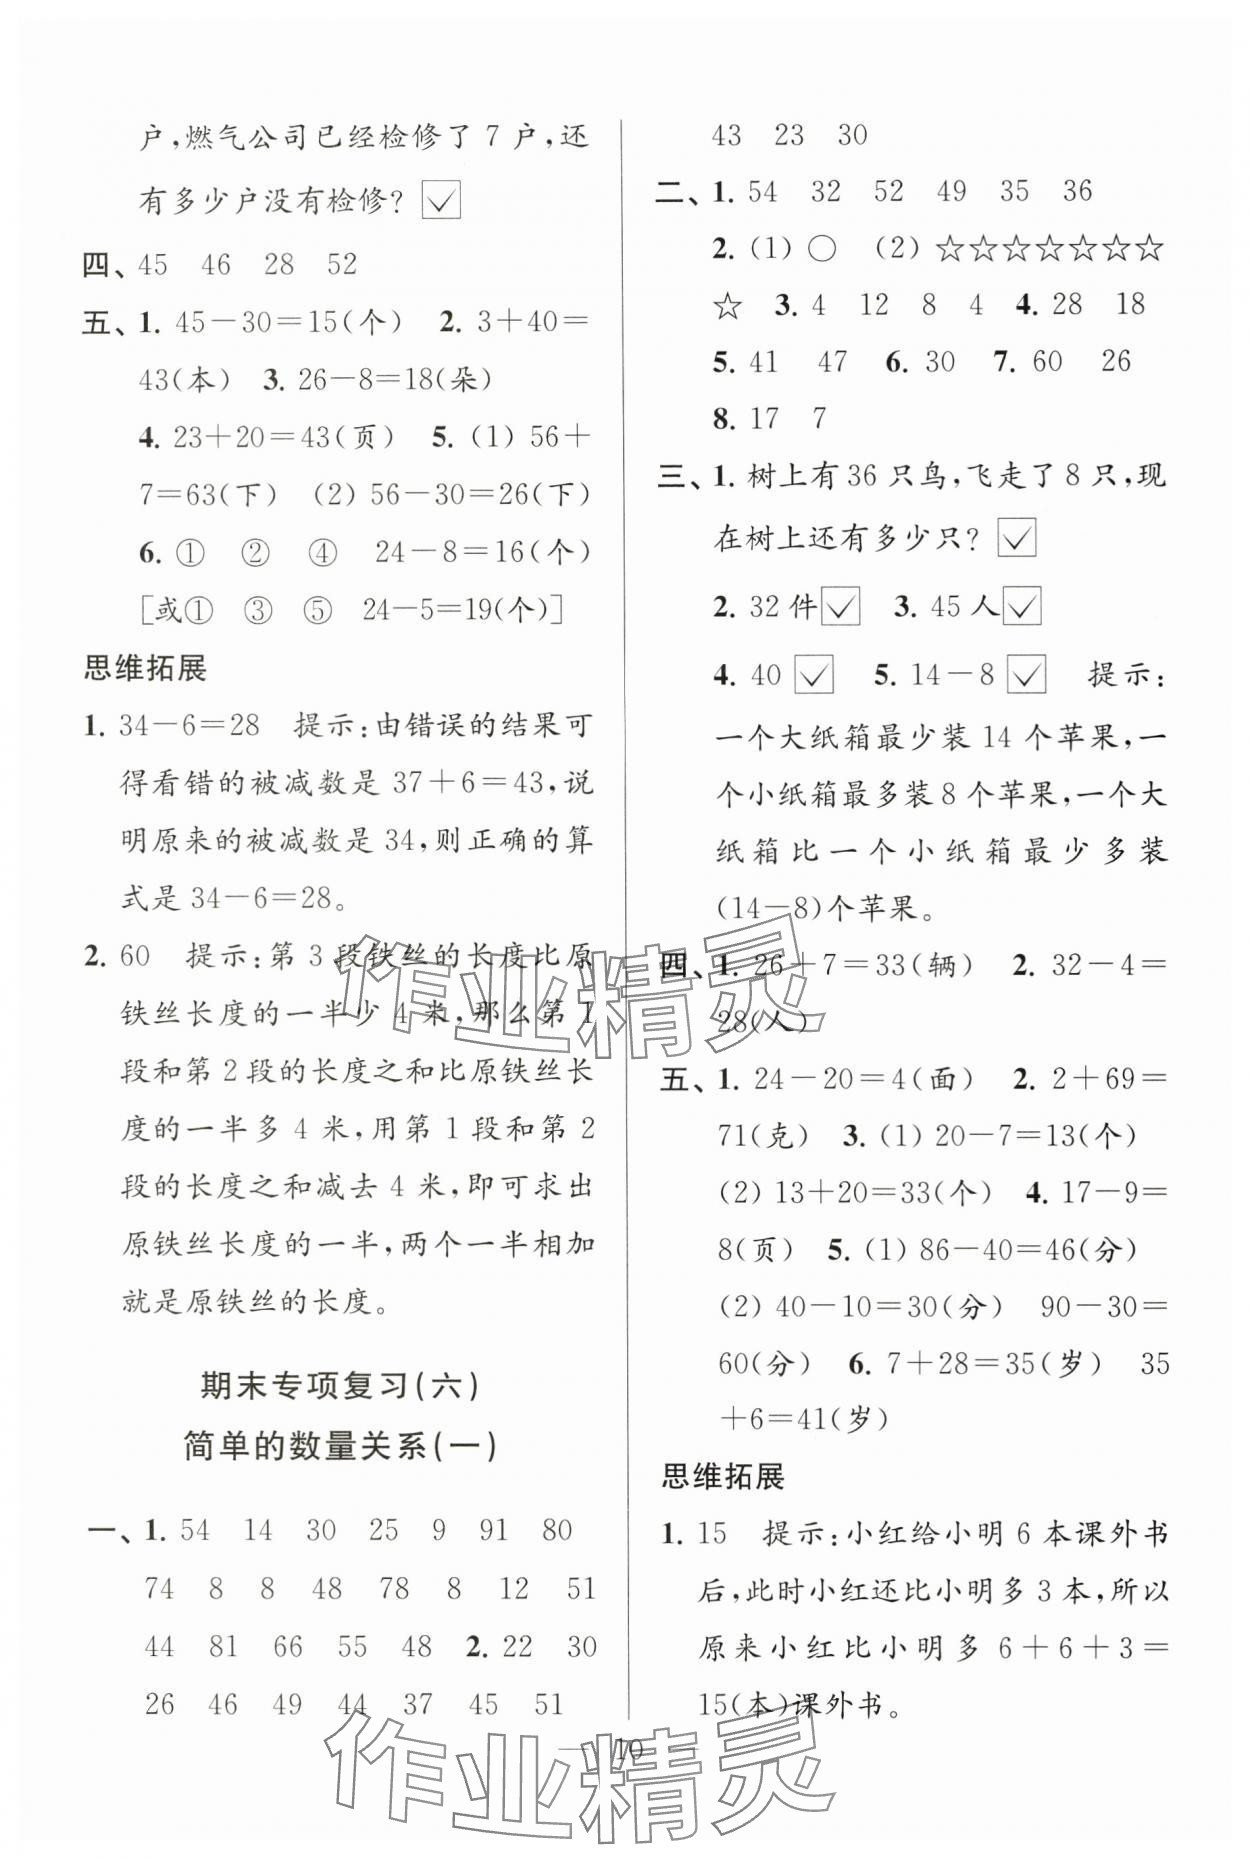 户,燃气公司已经检修了7户,还
有多少户没有检修? ☑
四、45 46 28 52
五、1. 45-30=15(个) 2. 3+40=
43(本) 3. 26-8=18(朵)
4. 23+20=43(页) 5. (1) 56+
7=63(下) (2) 56-30=26(下)
6. ① ② ④ 24-8=16(个)
[或① ③ ⑤ 24-5=19(个)]
思维拓展
1. 34-6=28 提示:由错误的结果可
得看错的被减数是37+6=43,说
明原来的被减数是34,则正确的算
式是34-6=28。
2. 60 提示:第3段铁丝的长度比原
铁丝长度的一半少4米,那么第1
段和第2段的长度之和比原铁丝长
度的一半多4米,用第1段和第2
段的长度之和减去4米,即可求出
原铁丝长度的一半,两个一半相加
就是原铁丝的长度。
期末专项复习(六)
简单的数量关系(一)
一、1. 54 14 30 25 9 91 80
74 8 8 48 78 8 12 51
44 81 66 55 48 2. 22 30
26 46 49 44 37 45 51
43 23 30
二、1. 54 32 52 49 35 36
2. (1) ○ (2) ☆☆☆☆☆☆☆
☆ 3. 4 12 8 4 4. 28 18
5. 41 47 6. 30 7. 60 26
8. 17 7
三、1. 树上有36只鸟,飞走了8只,现
在树上还有多少只? ☑
2. 32件☑ 3. 45人☑
4. 40 ☑ 5. 14-8 ☑ 提示:
一个大纸箱最少装14个苹果,一
个小纸箱最多装8个苹果,一个大
纸箱比一个小纸箱最少多装
(14-8)个苹果。
四、1. 26+7=33(辆) 2. 32-4=
28(人)
五、1. 24-20=4(面) 2. 2+69=
71(克) 3. (1) 20-7=13(个)
(2) 13+20=33(个) 4. 17-9=
8(页) 5. (1) 86-40=46(分)
(2) 40-10=30(分) 90-30=
60(分) 6. 7+28=35(岁) 35
+6=41(岁)
思维拓展
1. 15 提示:小红给小明6本课外书
后,此时小红还比小明多3本,所以
原来小红比小明多6+6+3=
15(本)课外书。
— 10 —
作业精灵
作业精灵